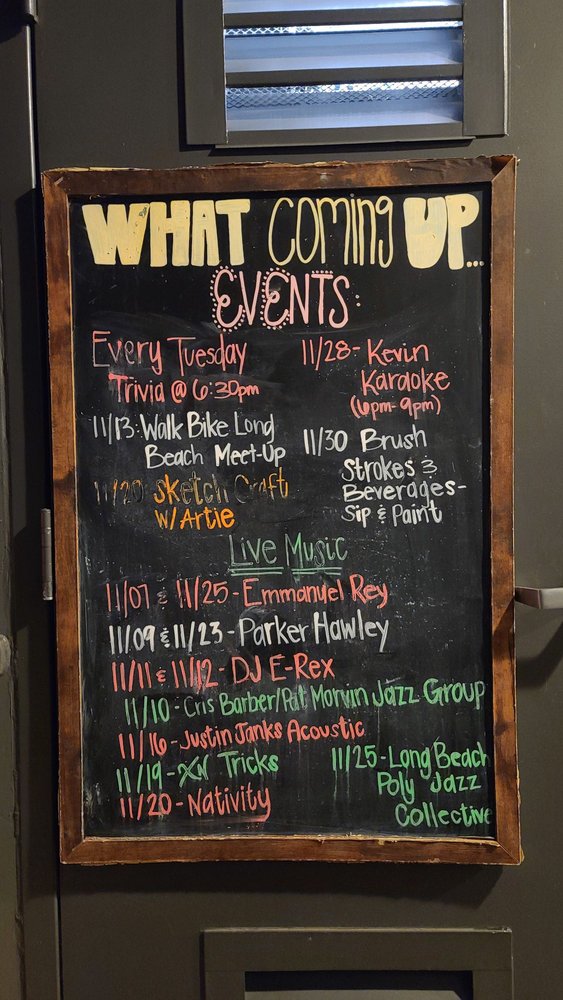 WHAT COMING UP...
EVENTS:
Every Tuesday
Trivia @ 6:30pm
11/13: Walk Bike Long
Beach Meet-Up
11/20: Sketch Craft
w/ Artie
11/28- Kevin
Karaoke
(6pm-9pm)
11/30 Brush
Strokes &
Beverages-
Sip & Paint
Live Music
11/07 & 11/25- Emmanuel Rey
11/09 & 11/23- Parker Hawley
11/11 & 11/12- DJ E-Rex
11/10- Cris Barber/Pat Morvin Jazz Group
11/16- Justin Janks Acoustic
11/19- XN Tricks
11/20- Nativity
11/25- Long Beach
Poly Jazz
Collective